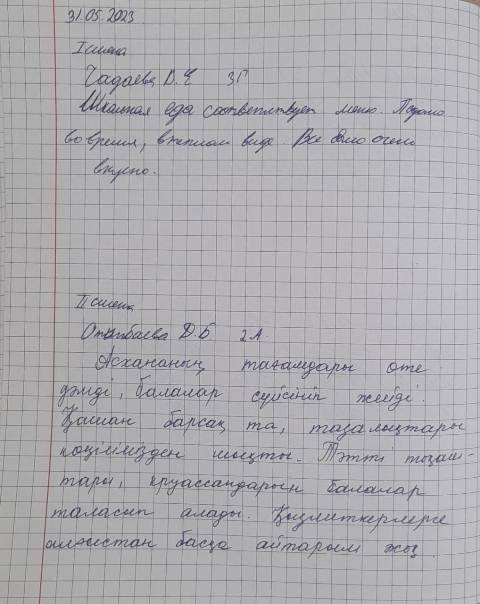 31.05.2023
I смена
Чадаева Д.Ч 3Г
Школьная еда соответствует меню. Подано
вовремя, в теплом виде. Все было очень
вкусно.
II смена
Д.Б 2А
Асхананың тағамдары өте
дәмді, балалар сүйсініп жейді.
Қашан барсақ та, тазалықтары
көңілімізден шықты. Тәтті тоқаш-
тары, круассандарын балалар
таласып алады. Қызметкерлерге
алғыстан басқа айтарым жоқ.